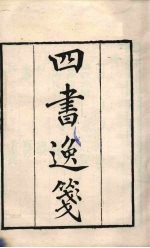 四書逸箋